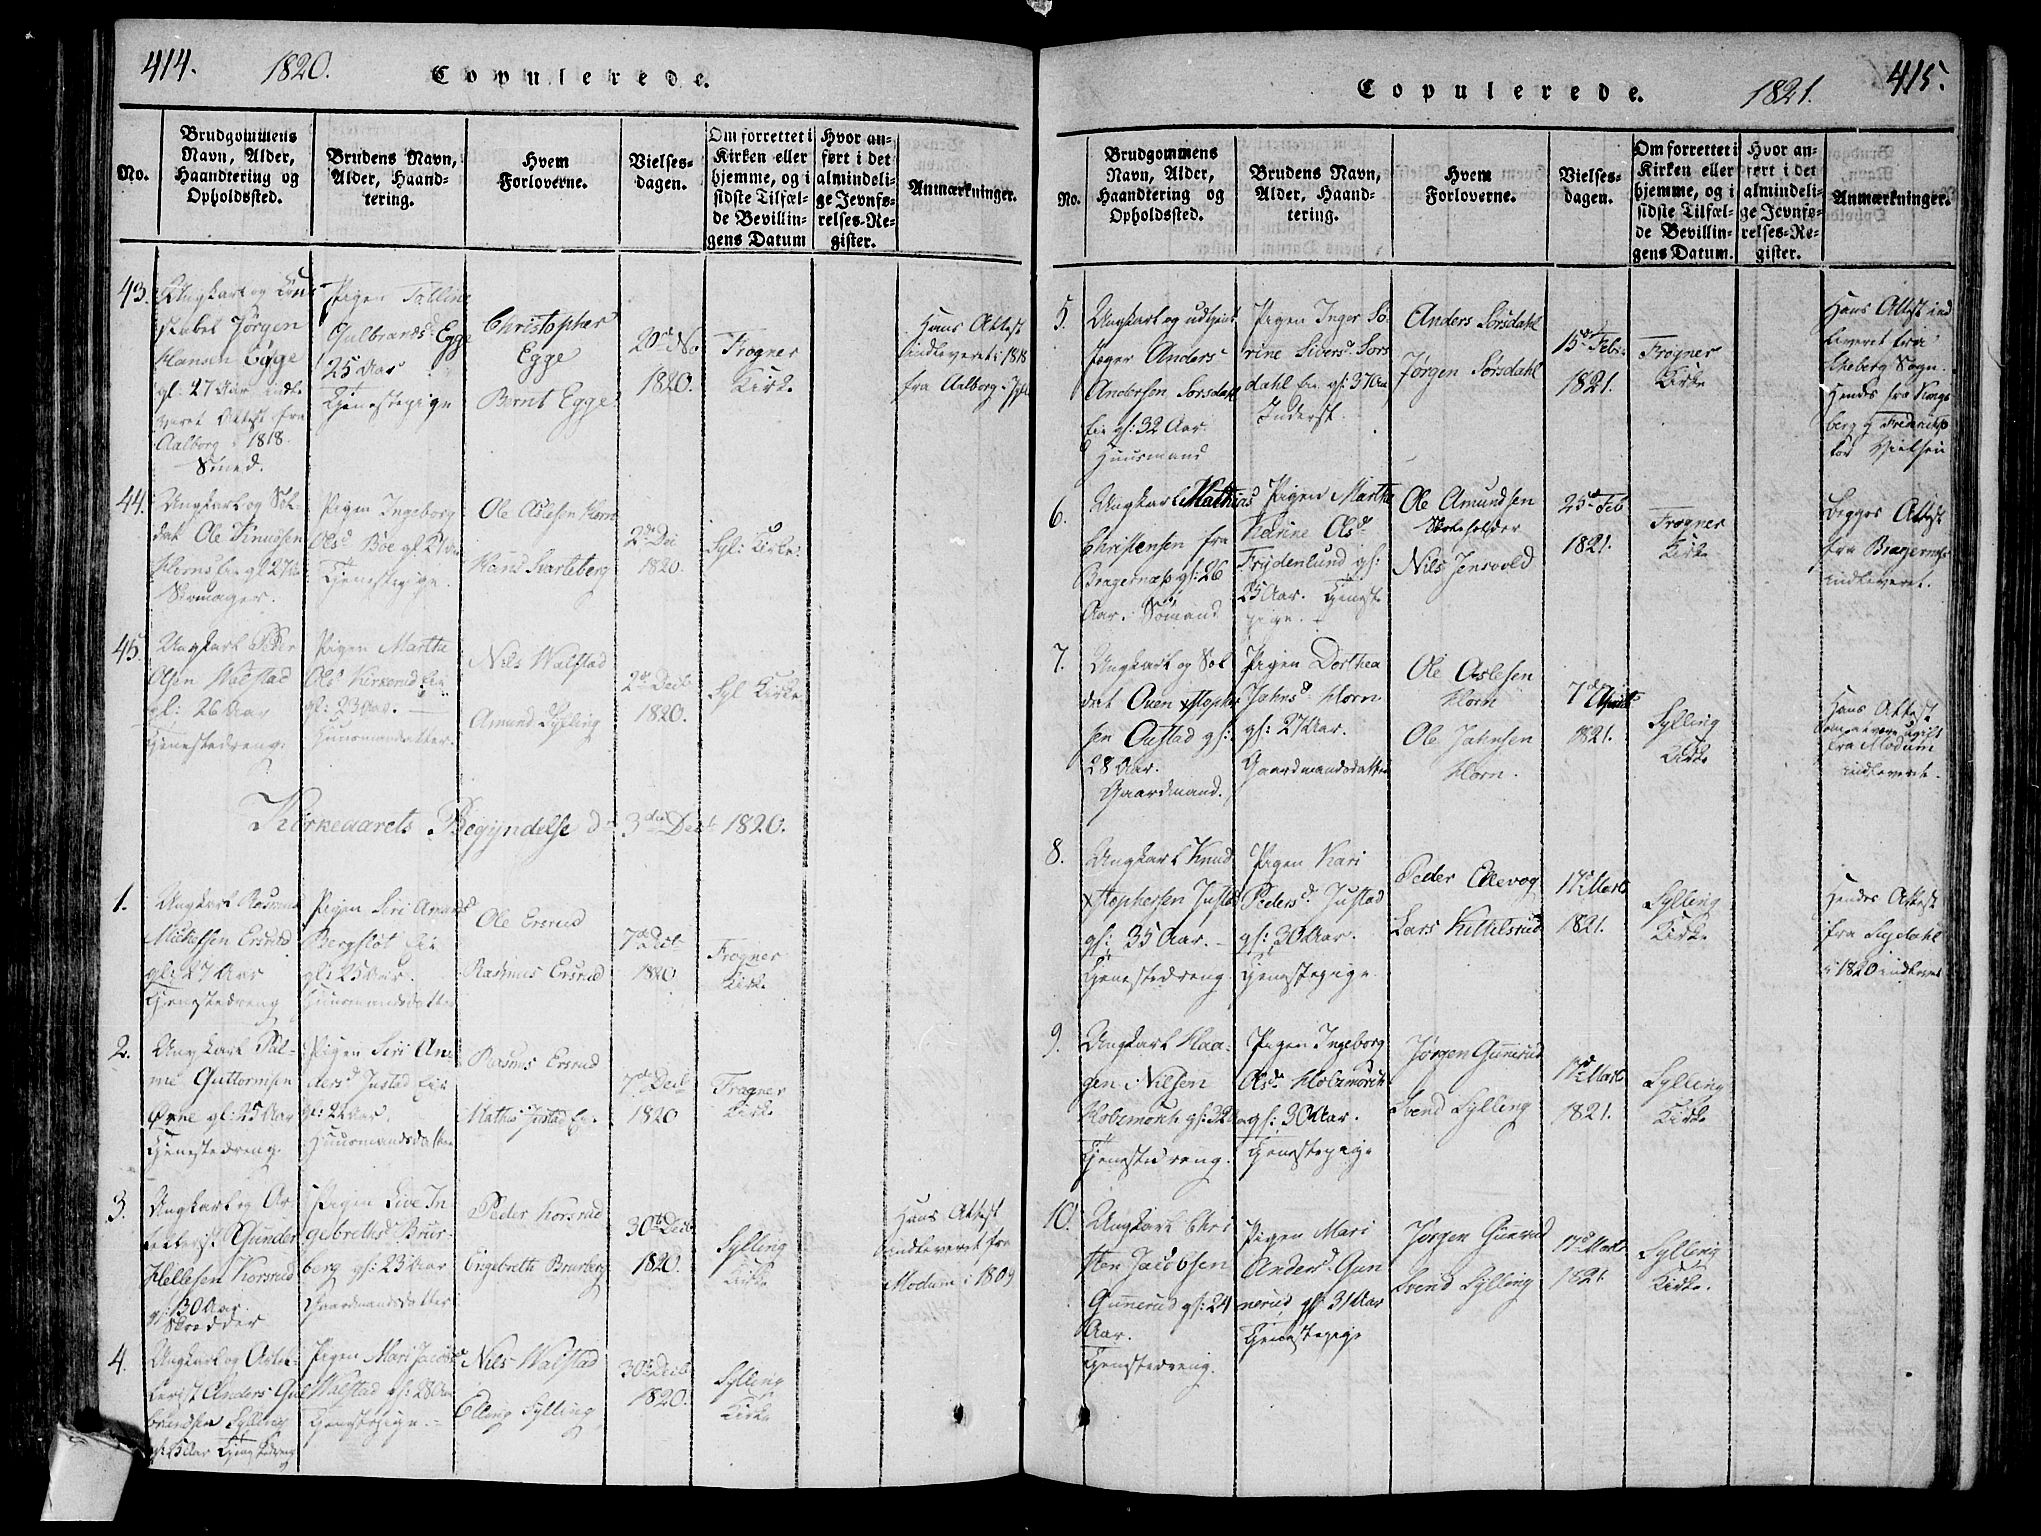 414. 1820. Copulerede.
No.
Brudgommens
Navn, Alder,
Haandtering og
Opholdssted.
Brudens Navn,
Alder, Haand-
tering.
Hvem
Forloverne.
Vielses-
dagen.
Om forrettet i
Kirken eller
hjemme, og i
sidste Tilfæl-
de Bevillin-
gens Datum
Hvor an-
ført i det
almindeli-
ge Jevnfø-
relses-Re-
gister.
Anmærkninger.
43.
Ungkarl og
Jørgen
Hansen Egge
gl: 27 Aar
Attest fra
Aalborg 1818.
Smed.
Pigen
Gulbrandsd Egge
25 Aar
Tjenestepige
Christopher
Egge
Bernt Egge
1820.
Frogner
Kirke
Hans Attest
indleveret i 1818
fra Aalborg
44.
Ungkarl og Sol-
dat Ole Knudsen
Horns Eie gl 27
Pigen Ingeborg
Olsd Böe gl 27 Aar
Tjenestepige.
Ole Aslesen Horn
Hans Svarteberg
2d De
1820.
Syl: Kirke
45.
Ungkarl Peder
Olsen Walstad
gl: 26 Aar
Tjenestedreng.
Pigen Marthe
Olsd Kirkerud Eie
gl: 23 Aar.
Huusmandsdatter.
Nils Walstad
Amund Sylling
2d Decb
1820.
Syl Kirke
Kirkeaarets Begyndelse d 3die Decb 1820.
1.
Ungkarl Rasmus
Michelsen Ersrud
gl: 27 Aar
Tjenestedreng
Pigen Siri Amunds
Bergslot Eie
gl: 25 Aar.
Huusmandsdatter
Ole Ersrud
Rasmus Ersrud
7de Decb
1820
Frogner
Kirke
2.
Ungkarl Pal-
me Guttormsen
gl: 25 Aar
Tjenestedreng.
Pigen Siri An-
dersd Justad Eie
Huusmandsdatter
Rasmus Ersrud
Mathis Justad Eie.
7de Decb
1820
Frogner
Kirke
3.
Ungkarl og Ar-
tillerist Gunder
Hellesen Korsrud
gl: 30 Aar.
Skredder
Pigen Live In-
gebrethsd Brur-
berg gl: 23 Aar
Gaardmandsdatter
Peder Korsrud
Engebreth Brurberg
30te Decb
1820.
Sylling
Kirke
Hans Attest
indleveret fra
Modum i 1809
4.
Ungkarl og Artil-
lerist Anders Gul-
brandsen Sylling
gl: 25 Aar Tjenestedreng
Pigen Mari Jacobsd
Walstad gl: 28 Aar
Tjenestepige.
Nils Walstad
Elling Sylling
30te Decb
1820.
Sylling
Kirke
Copulerede. 1821. 415.
No.
Brudgommens
Navn, Alder,
Haandtering og
Opholdssted.
Brudens Navn,
Alder, Haand-
tering.
Hvem
Forloverne.
Vielses-
dagen.
Om forrettet i
Kirken eller
hjemme, og i
sidste Tilfæl-
de Bevillin-
gens Datum.
Hvor an-
ført i det
almindeli-
ge Jevnfø-
relses-Re-
gister.
Anmærkninger.
5.
Ungkarl og udtjent
Jæger Anders
Andersen Sorsdahl
Eie gl: 32 Aar
Huusmand
Pigen Inger Sø-
rine Siversd Sors-
dahl Eie. gl: 37 Aar
Inderst.
Anders Sorsdahl
Jørgen Sørsdahl
15de Febr.
1821.
Frogner
Kirke
Hans Attest ind-
leveret fra
Sogn.
Hendes fra Kongs-
berg
Nielsen
6.
Ungkarl Mathias
Christensen fra
Bragernæs gl: 26
Aar. Sömand
Pigen Marthe
Karine Olsd
Frydenlund gl:
25 Aar. Tjeneste-
pige.
Ole Amundsen
Skoleholder
Nils Jensvold
25de Feb
1821.
Frogner
Kirke
Begges Attest
fra Bragernæs
indleveret.
7.
Ungkarl og Sol-
dat Even Xstopher-
sen Opstad gl:
28 Aar.
Gaardmand.
Pigen Dorthea
Jahnsd Horn
gl: 27 Aar.
Gaardmandsdatter
Ole Aslesen
Horn
Ole Jahnsen
Horn.
7de April
1821.
Sylling
Kirke
Hans Attest
om at være ugift
fra Modum
indleveret.
8.
Ungkarl Knud
Xstophersen Justad
gl: 35 Aar.
Tjenestedreng.
Pigen Kari
Pedersd. Justad
gl: 30 Aar.
Tjenestepige.
Peder Ellevog
Lars Kittilsrud
17de Marts
1821.
Sylling
Kirke
Hendes Attest
fra Sigdahl
i 1820 indleveret
9.
Ungkarl Haa-
gen Nilsen
Holsmörch gl: 32
Tjenestedreng.
Pigen Ingeborg
Olsd Holsmörch
gl: 30 Aar.
Tjenestepige
Jørgen Gunerud
Svend Sylling
17de Marts
1821.
Sylling
Kirke
10.
Ungkarl Chri-
sten Jacobsen
Gunerud gl: 24
Aar.
Tjenestedreng.
Pigen Mari
Andersd. Gun-
nerud gl 31 Aar
Tjenestepige
Jørgen Gunerud
Svend Sylling
17de Marts
1821.
Sylling
Kirke.